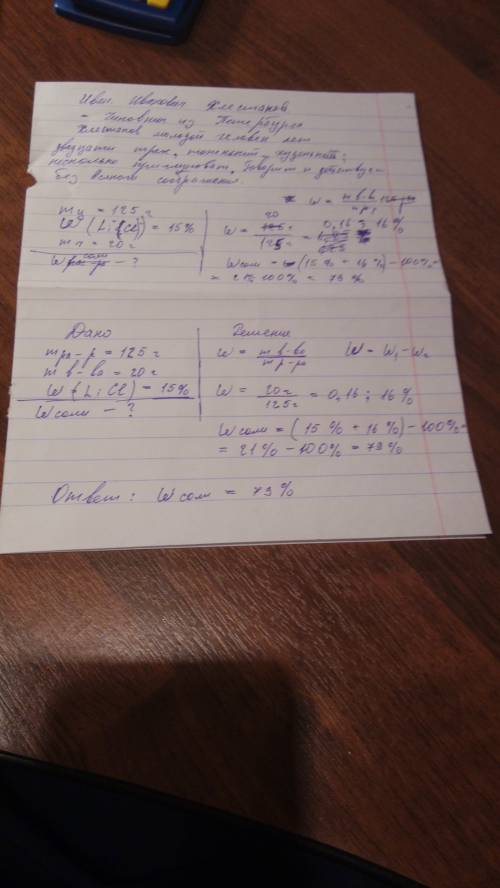 Иван Иванович Хлестаков
- Чиновник из Петербурга
Хлестаков молодой человек лет
двадцати трех, тоненький, худенький;
несколько приглуповат. Говорит и действует
без всякого соображения.
m = 125
W (LiCl) = 15%
m = 20г
W соли - ?
W =
20
W = 125 = 0,16 ; 16%
W соли = (15% + 16%) - 100% =
= 21% - 100% = 79%
Дано
m р-р = 125 г
m в-во = 20 г
W (LiCl) = 15%
W соли - ?
Решение
W = m в-во / m р-ра W = W₁ - W₂
W = 20г / 125г = 0,16 ; 16%
W соли = (15% + 16%) - 100% =
= 21% - 100% = 79%
Ответ: W соли = 79%